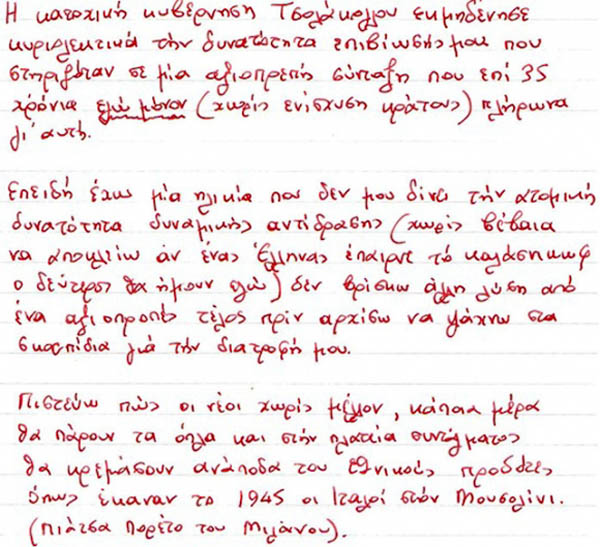 Η κατοχική κυβέρνηση Τσολάκογλου εκμηδένησε
κυριολεκτικά τήν δυνατότητα επιβίωσής μου που
στηριζόταν σε μία αξιοπρεπή σύνταξη που επί 35
χρόνια εγώ μόνον (χωρίς ενίσχυση κράτους) πλήρωνα
γι' αυτή.
Επειδή έχω μία ηλικία που δεν μου δίνει τήν ατομική
δυνατότητα δυναμικής αντίδρασης (χωρίς βέβαια
να αποκλείω άν ένας Έλληνας έπαιρνε τό καλάσνικωφ
ο δεύτερος θα ήμουν εγώ) δεν βρίσκω άλλη λύση από
ένα αξιοπρεπές τέλος πρίν αρχίσω να ψάχνω στα
σκουπίδια γιά τήν διατροφή μου.
Πιστεύω πώς οι νέοι χωρίς μέλλον, κάποια μέρα
θα πάρουν τα όπλα και στήν πλατεία συντάγματος
θα κρεμάσουν ανάποδα τους εθνικούς προδότες
όπως έκαναν το 1945 οι Ιταλοί στόν Μουσολίνι.
(πιάτσα Πορέτο του Μιλάνου).